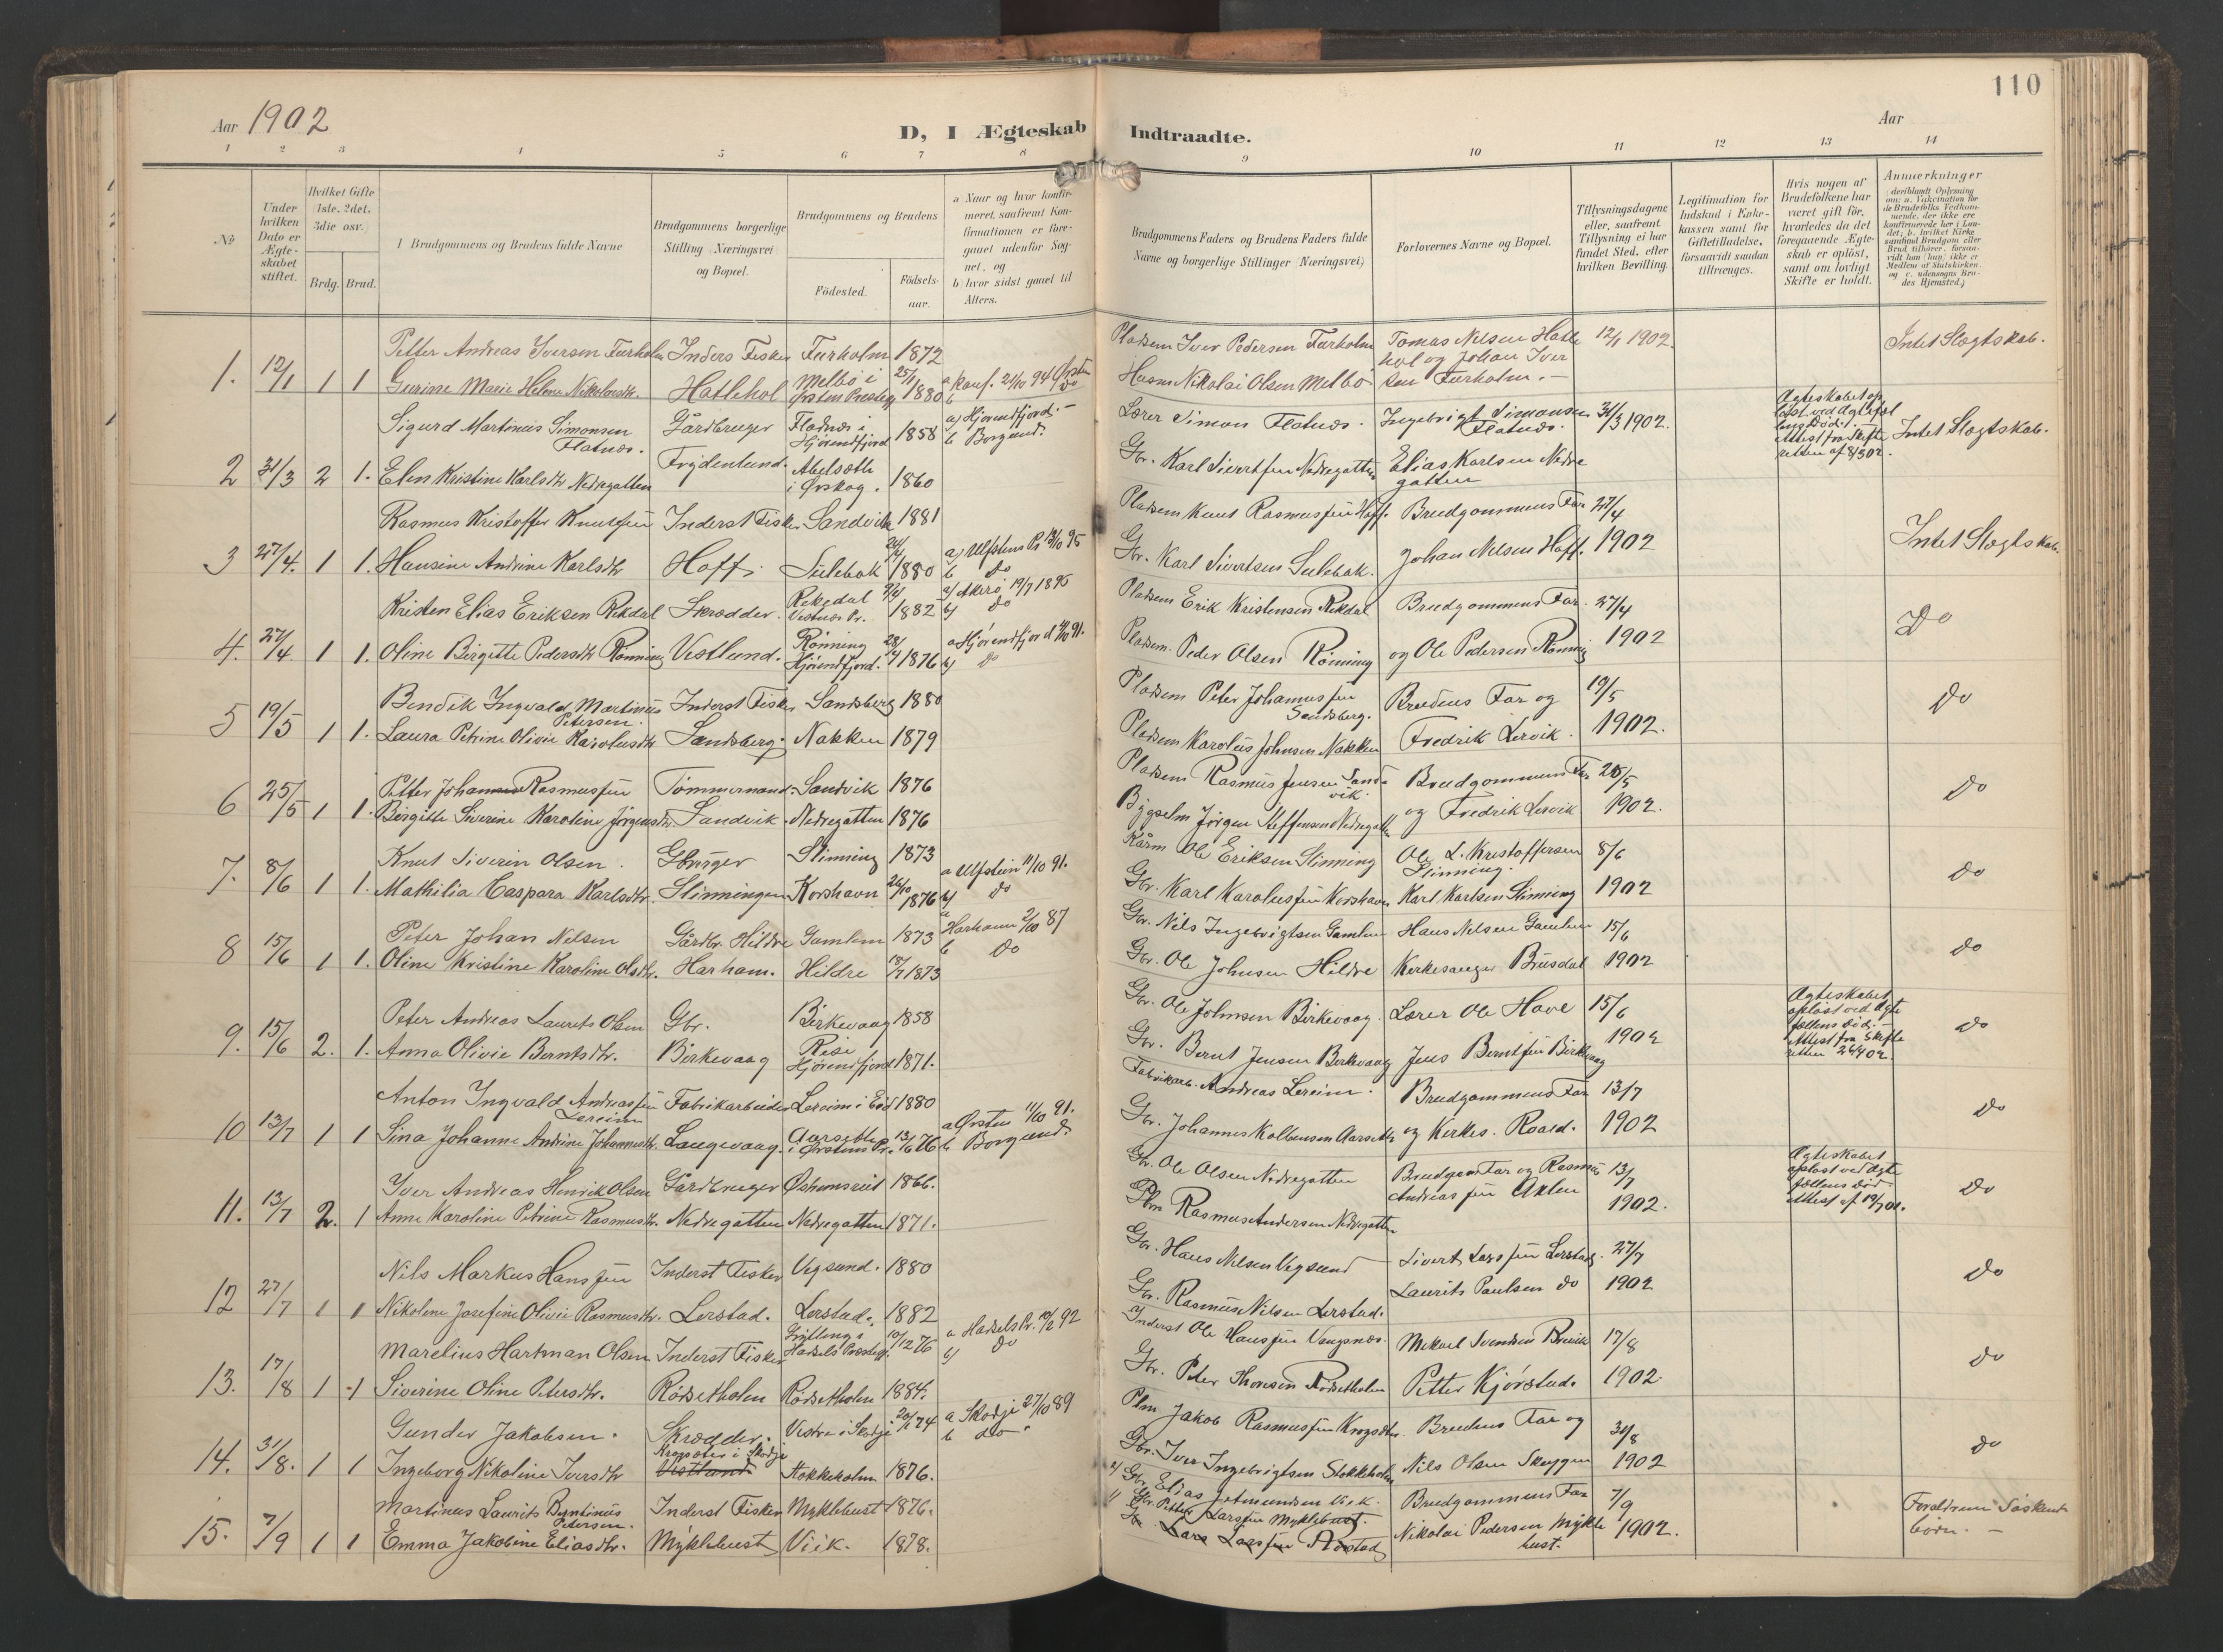 Aar 1902
D, I Ægteskab Indtraadte.
Aar
110
1 2 3 4 5 6 7 8 9 10 11 12 13 14
No
Under hvilken Dato er Ægteskabet stiftet.
Hvilket Gifte 1ste, 2det, 3die osv.
Brdg. Brud.
Brudgommens og Brudens fulde Navne
Brudgommens borgerlige Stilling (Næringsvei) og Bopæl.
Brudgommens og Brudens
Födested.
Födselsaar.
a Naar og hvor konfirmeret, saafremt Konfirmationen er foregaaet udenför Sognet, og
b hvor sidst gaaet til Alters.
Brudgommens Faders og Brudens Faders fulde Navne og borgerlige Stillinger (Næringsvei)
Forlovernes Navne og Bopæl.
Tillysningsdagene eller, saafremt Tillysning ei har fundet Sted, efter hvilken Bevilling.
Legitimation for Indskud i Enkekassen samt for Giftetilladelse, forsaavidt saadan tiltrænges.
Hvis nogen af Brudefolkene har været gift för, hvorledes da det foregaaende Ægteskab er oplöst, samt om lovligt Skifte er holdt.
Anmærkninger
1. 12/1 1 1 Petter Andreas Iversen Furholm Inders Fisker Furholm 1872 Pladsm Iver Pedersen Furholm Tomas Nilsen Hatlehol og Johan Iversen Furholm. 12/1 1902. Intet Slægtskab.
Gurine Marie Helene Nikolaisdtr. Hatlehol Melbö i Ørsten Prestegj 25/1 1880 a Konf. 21/10 94 Ørsten b do Husm Nikolai Olsen Melbö
2 31/3 2 1. Sigurd Martinus Simonsen Flatnæs. Gårdbruger Fladnæs i Hjörendfjord 1858 a) Hjörendfjord. b Borgund. Lærer Simon Flatnæs. Ingebrigt Simonsen Flatnæs. 31/3 1902. Ægteskabet oplöst ved Ægtefællens Död. Attest fra Skifteretten af 8/3 02. Intet Slægtskab.
Elen Kristine Karlsdtr Nedregatten Frydenlund. Abelsæth i Ørskog. 1860 Gbr. Karl Sivertsen Nedregatten Elias Karlsen Nedregatten
3 27/4. 1 1. Rasmus Kristoffer Knutsen Inderst Fisker Sandvik 1881 Pladsm Knut Rasmussen Hoff. Brudgommens Far 27/4 1902 Intet Slægtskab.
Hansine Andrine Karlsdtr Hoff. Sulebak 1880 a) Ulfstens Pr 13/10 95 b do Gbr. Karl Sivertsen Sulebak. Johan Nelsen Hoff.
4. 27/4. 1 1. Kristen Elias Eriksen Rekdal Skrædder. Rekdal Vestnæs Pr. 1882 a) Akerö 19/7 1896 b) do Pladsm Erik Kristensen Rekdal Brudgommens Far 27/4 1902 Do
Oline Birgitte Pedersdtr Rönning Vestlund. Rönning Hjörendfjord. 1876 a Hjörendfjord 91. b) do Pladsm. Peder Olsen Rönning og Ole Pedersen Rönning
5 19/5 1 1. Bendik Ingvald Martinius Petersen. Inderst Fisker Sandsberg 1880 Pladsm Peter Johannessen Sandsberg. Brudens Far og 19/5 1902. Do
Laura Petrine Olivie Karolusdtr Sandsberg. Nakken 1879 Pladsm Karolus Johnsen Nakken Fredrik Lervik.
6 25/5 1 1. Petter Johannes Rasmussen Tömmermand. Sandvik 1876 Pladsm Rasmus Jensen Sandvik. Brudgommens Far 25/5 1902. Do
Birgitte Siverine Karoline Jörgensdtr. Sandvik. Nedregatten 1876 Bygselm Jörgen Steffensen Nedregatten og Fredrik Lervik
7. 8/6 1 1. Knut Siverin Olsen. Gbruger Slinning 1873 Kårm Ole Eriksen Slinning Ole L. Kristoffersen Slinning. 8/6 1902 Do
Mathilia Caspara Karlsdtr. Slinningen Korshavn 26/10 1876 a Ulfstein 11/10 91. b) do Gbr. Karl Karolussen Korshavn Karl Karlsen Slinning
8 15/6 1 1. Peter Johan Nelsen Gårdbr. Hildre Gamlem 1873 a Harham 2/10 87 b do Gbr. Nils Ingebrigtsen Gamlem Hans Nelsen Gamlem 15/6 1902 do
Oline Kristine Karoline Olsdtr. Harham. Hildre 18/7 1873 Gbr. Ole Johnsen Hildre Kerkesanger Brusdal
9. 15/6 2. 1. Peter Andreas Laurits Olsen Gbr. Birkevaag 1858 Gbr. Ole Johnsen Birkevaag. Lærer Ole Hove 15/6 1902 Ægteskabet oplöst ved Ægtefællens död. Attest fra Skifteretten 26/4 02. do
Anna Olivie Berntsdtr. Birkevaag Rise Hjörendfjord 1871. Gbr. Bernt Jensen Birkevaag Jens Berntsen Birkevaag
10 13/7 1 1 Anton Ingvald Andreassen Lereim Fabrikarbeider Lereim i Eid 1880 Fabrikarb. Andreas Lereim. Brudgommens Far 13/7 1902 do
Sina Johanne Andrine Johannesdtr. Langevaag. Aarseth i Ørstens Pr. 13/6 76 a Ørsten 11/10 91. b Borgund. Gbr. Johannes Kolbensen Aarseth og Kerkes. Roald.
11. 13/7 2. 1 Iver Andreas Henrik Olsen Gårdbruger 1866. Gbr. Ole Olsen Nedregatten Brudgom Far og Rasmus Andreassen Axlen 13/7 1902. Ægteskabet oplöst ved Ægtefællens Död Attest af 19/7 01. do
Anne Karoline Petrine Rasmusdtr. Nedregatten Nedregatten 1871. Plm Rasmus Andersen Nedregatten
12 27/7 1 1 Nils Markus Hanssen Inderst Fisker Vegsund. 1880 Gbr. Hans Nelsen Vegsund Sivert Larssen Lerstad. 27/7 1902 do
Nikoline Josefine Olivie Rasmusdtr. Lerstad. Lerstad. 1882 Gbr. Rasmus Nilsen Lerstad. Laurits Paulsen do
13. 17/8 1 1 Marelius Hartman Olsen Inderst Fisker Hadsels Prestegj. 10/12 76 a Hadsels Pr. 92 b) do Inderst Ole Hanssen Vangsnæs. Mikael Svendsen Brevik 17/8 1902. do
Siverine Oline Petersdtr. Rödsetholm Rödsetholm 1884. Gbr. Peter Thoresen Rödsetholm Petter Kjörstad.
14. 31/8. 1 1 Gunder Jakobsen. Skrædder. Krogsæter i Skodje Vestre i Skodje 74 a Skodje 27/10 89 b do Plm Jakob Rasmussen Krogsæter. Brudens Far og 31/8 1902 do
Ingeborg Nikoline Iversdtr Vestlund Stokkeholm 1876. Gbr. Iver Ingebrigtsen Stokkeholm Nils Olsen Skuggen
15. 7/9 1 1 Martinus Laurits Berntinus Petersen. Inderst Fisker Myklebust 1876. 2/ Gbr Elias Jetmundsen Viik. Brudgommens Far 7/9 1902. Forældrene Söskendebörn.
Emma Jakobine Eliasdtr. Myklebust Viik. 1878. 1/ Gbr. Petter Larssen Myklebust. Nikolai Pedersen Myklebust.
Gbr. Lars Larssen